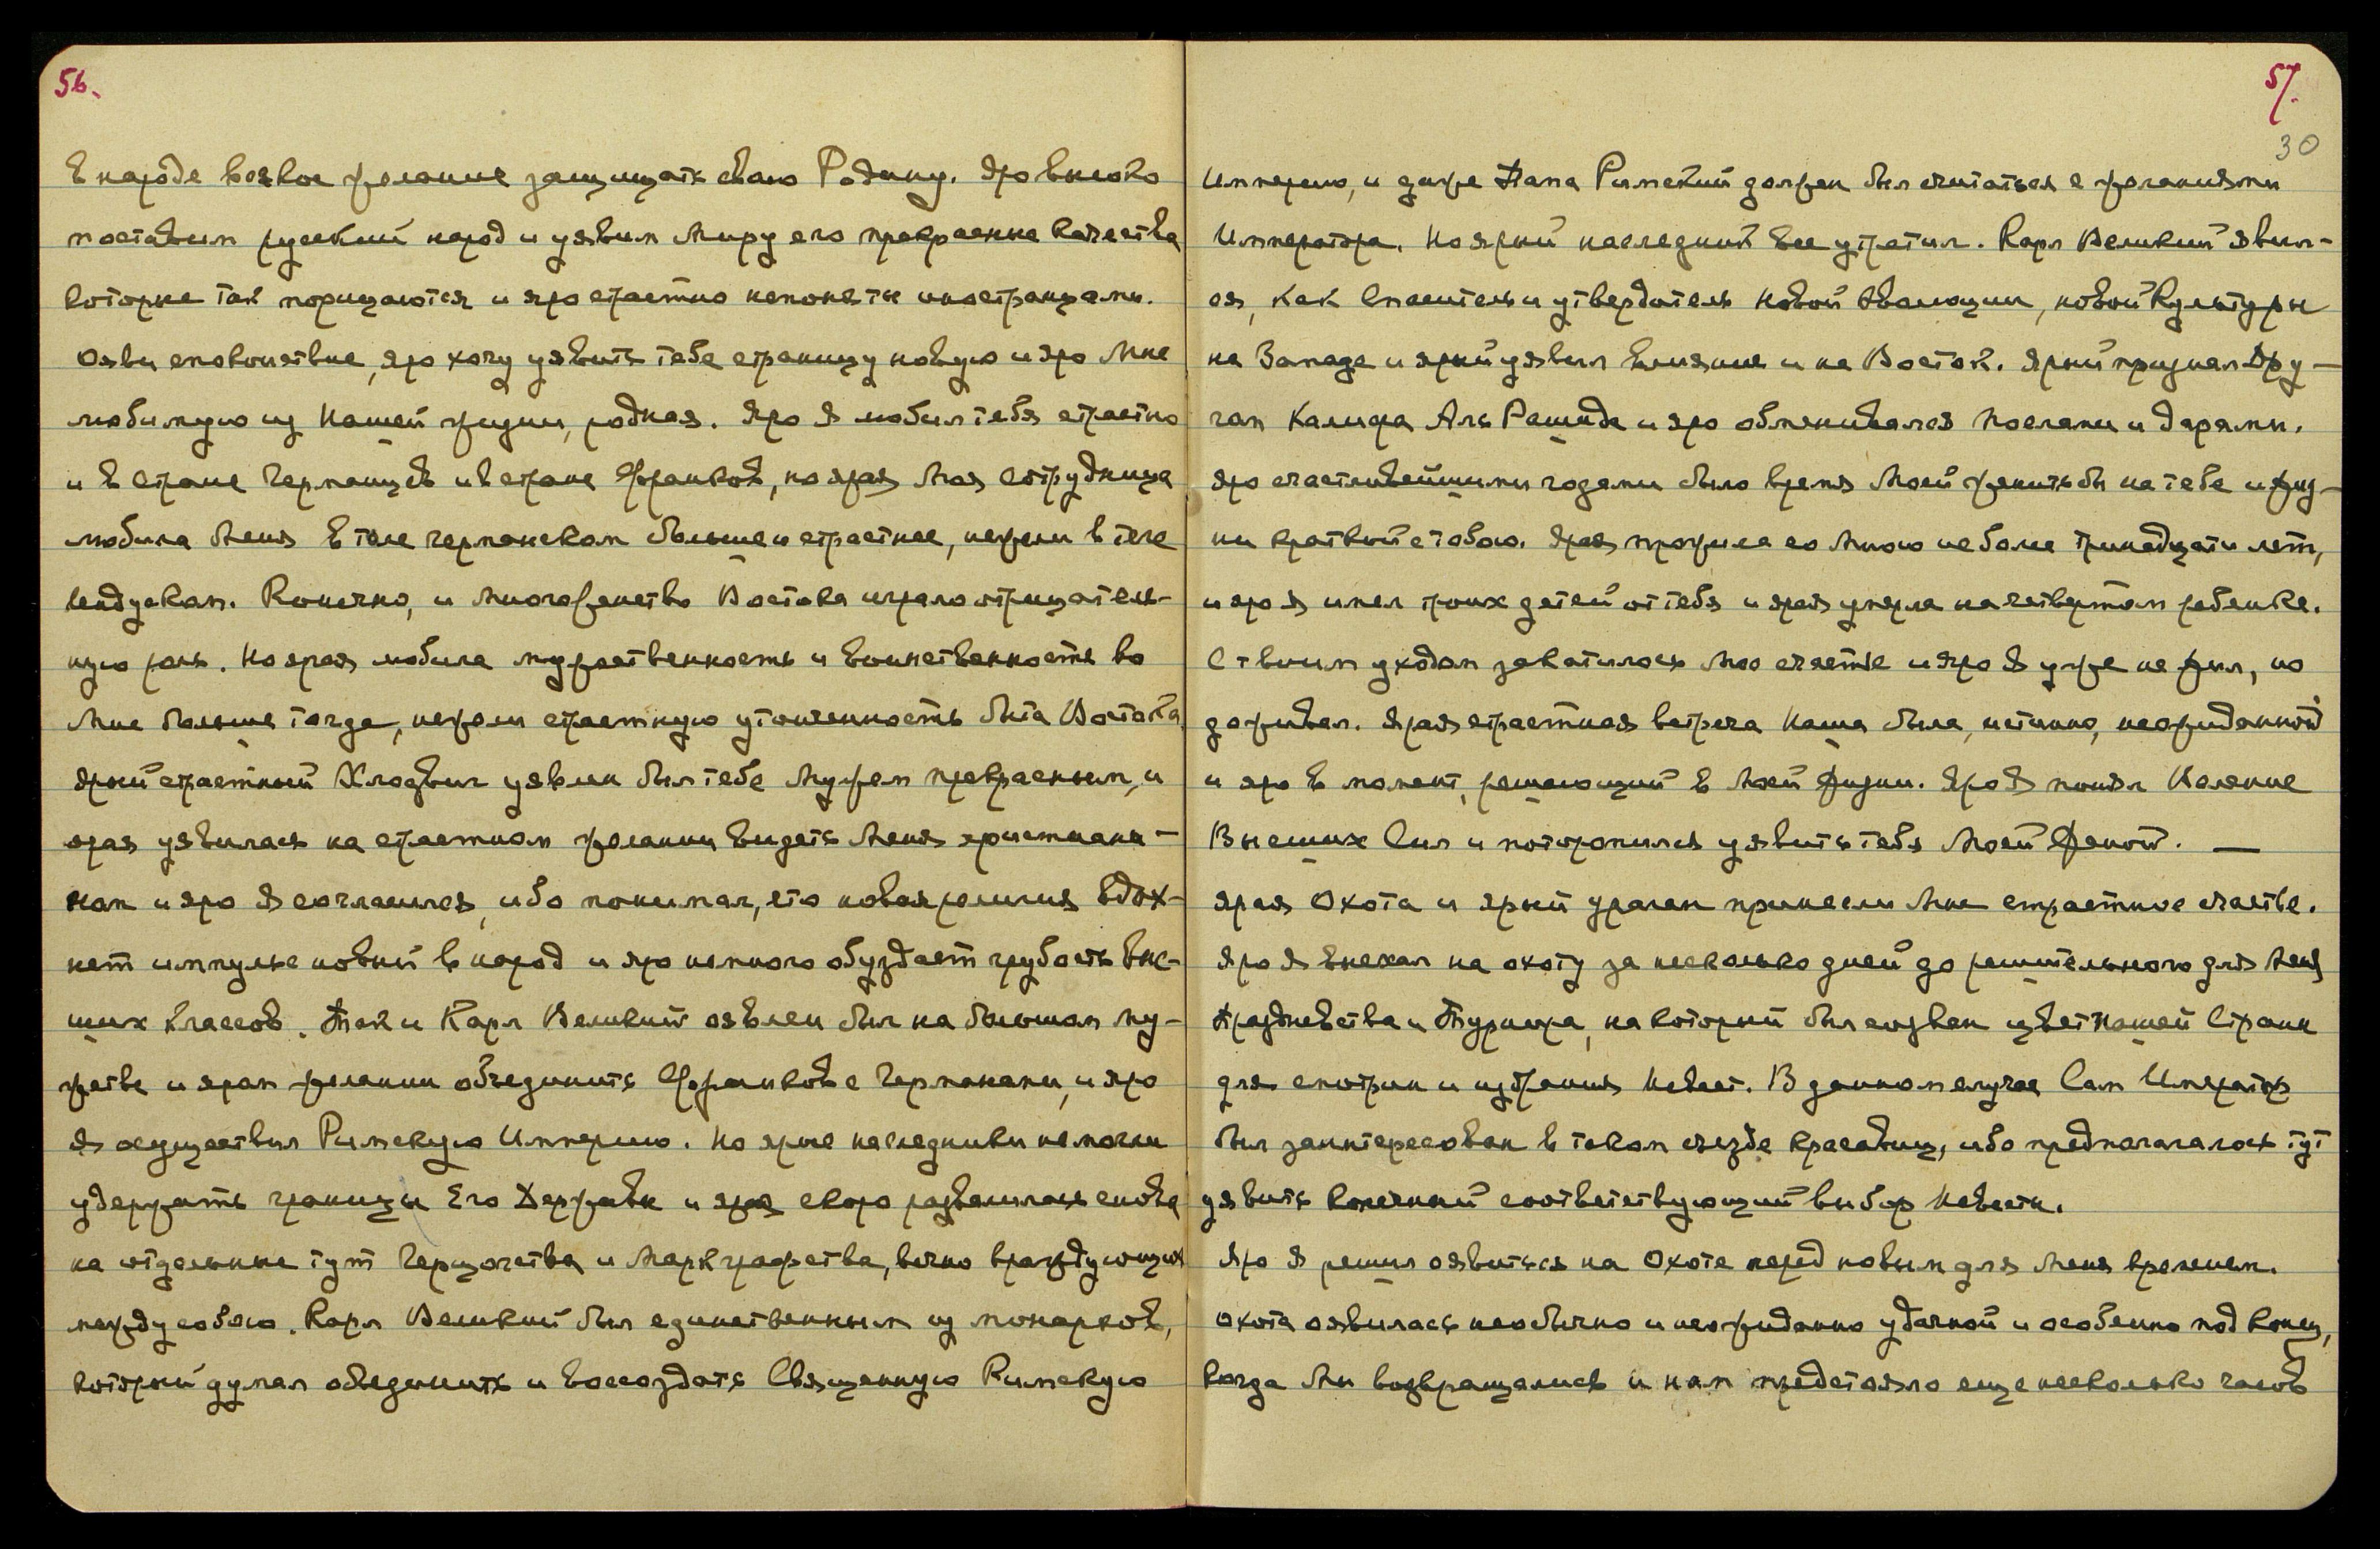 56.
в народе всякое желание защищать свою Родину. Яро высоко
поставим русский народ и уявим Миру его прекрасные качества
которые так порицаются и яро страстно непоняты иностранцами.
Ояви спокойствие, яро хочу уявить тебе страницу новую и яро Мне
любимую из Нашей жизни, родная. Яро Я любил тебя страстно
и в стране Германцев и в стране Франков, но ярая Моя сотрудница
любила Меня в теле германском больше и страстнее, нежели в теле
Индусском. Конечно, и многоженство Востока играло отрицатель-
ную роль. Но ярая любила мужественность и воинственность во
Мне больше тогда, нежели страстную утонченность быта Востока.
Ярый страстный Хлодвиг уявлен был тебе Мужем прекрасным, и
ярая уявилась на страстном желании видеть Меня христиани-
ном и яро Я согласился, ибо понимал, что новая религия вдох-
нет импульс новый в народ и яро немного обуздает грубость выс-
ших классов. Так и Карл Великий оявлен был на большом му-
жестве и яром желании объединить Франков с Германами, и яро
Я осуществил Римскую Империю. Но ярые наследники не могли
удержать границы Его Державы и ярая скоро развалилась снова
на отдельные тут Герцогства и Маркграфства, вечно враждующих
между собою. Карл Великий был единственным из монархов,
который думал объединить и воссоздать Священную Римскую
57.
30
Империю, и даже Папа Римский должен был считаться с желаниями
Императора. Но ярый наследник все утратил. Карл Великий явил-
ся, как Спаситель и утвердитель новой Эволюции, новой Культуры
на Западе и ярый уявил влияние и на Восток. Ярый признал Дру-
гом Калифа Аль Рашида и яро обменивался Послами и дарами.
Яро счастливейшими годами было время Моей женитьбы на тебе и жиз-
ни краткой с тобою. Ярая прожила со Мною не более тринадцати лет,
и яро Я имел троих детей от тебя и ярая умерла на четвертом ребенке.
С твоим уходом закатилось Мое счастье и яро Я уже не жил, но
доживал. Ярая страстная встреча Наша была, истинно, неожиданной
и яро в момент, решающий в Моей жизни. Яро Я понял Желание
Высших Сил и поторопился уявить тебя Моей Женой. —
Ярая Охота и ярый ураган принесли Мне страстное счастье.
Яро Я выехал на охоту за несколько дней до решительного для Меня
Празднества и Турнира, на который был созван цвет Нашей Страны
для смотрин и избрания Невест. В данном случае Сам Император
был заинтересован в таком съезде красавиц, ибо предполагалось тут
уявить конечный соответствующий выбор Невесты.
Яро Я решил оявиться на Охоте перед новым для Меня временем.
Охота оявилась необычно и неожиданно удачной и особенно под конец,
когда Мы возвращались и нам предстояло еще несколько часов